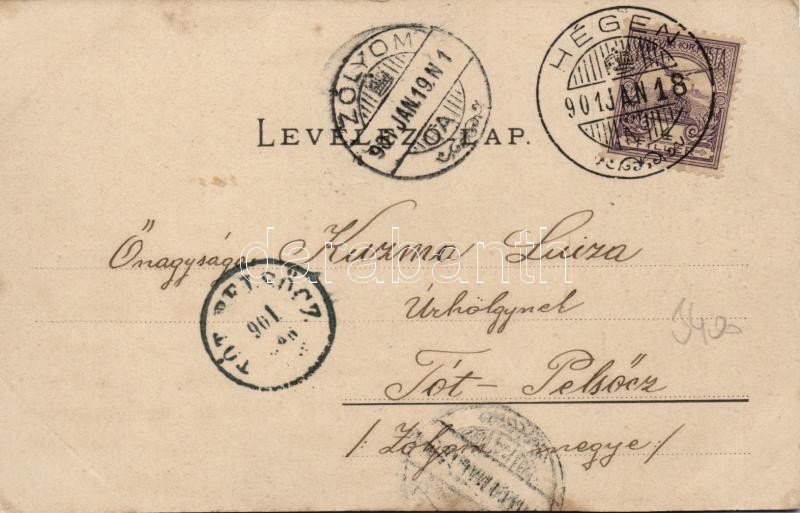 ZÓLYOM
901 JAN. 19. N 1
HÉGEN
901 JAN 18
LEVELEZŐ-LAP.
Őnagysága Kuzma Luiza
Úrhölgynek
Tót-Pelsőcz
/: Zólyom megye :/
TÓT PELSŐCZ
901
darabanth